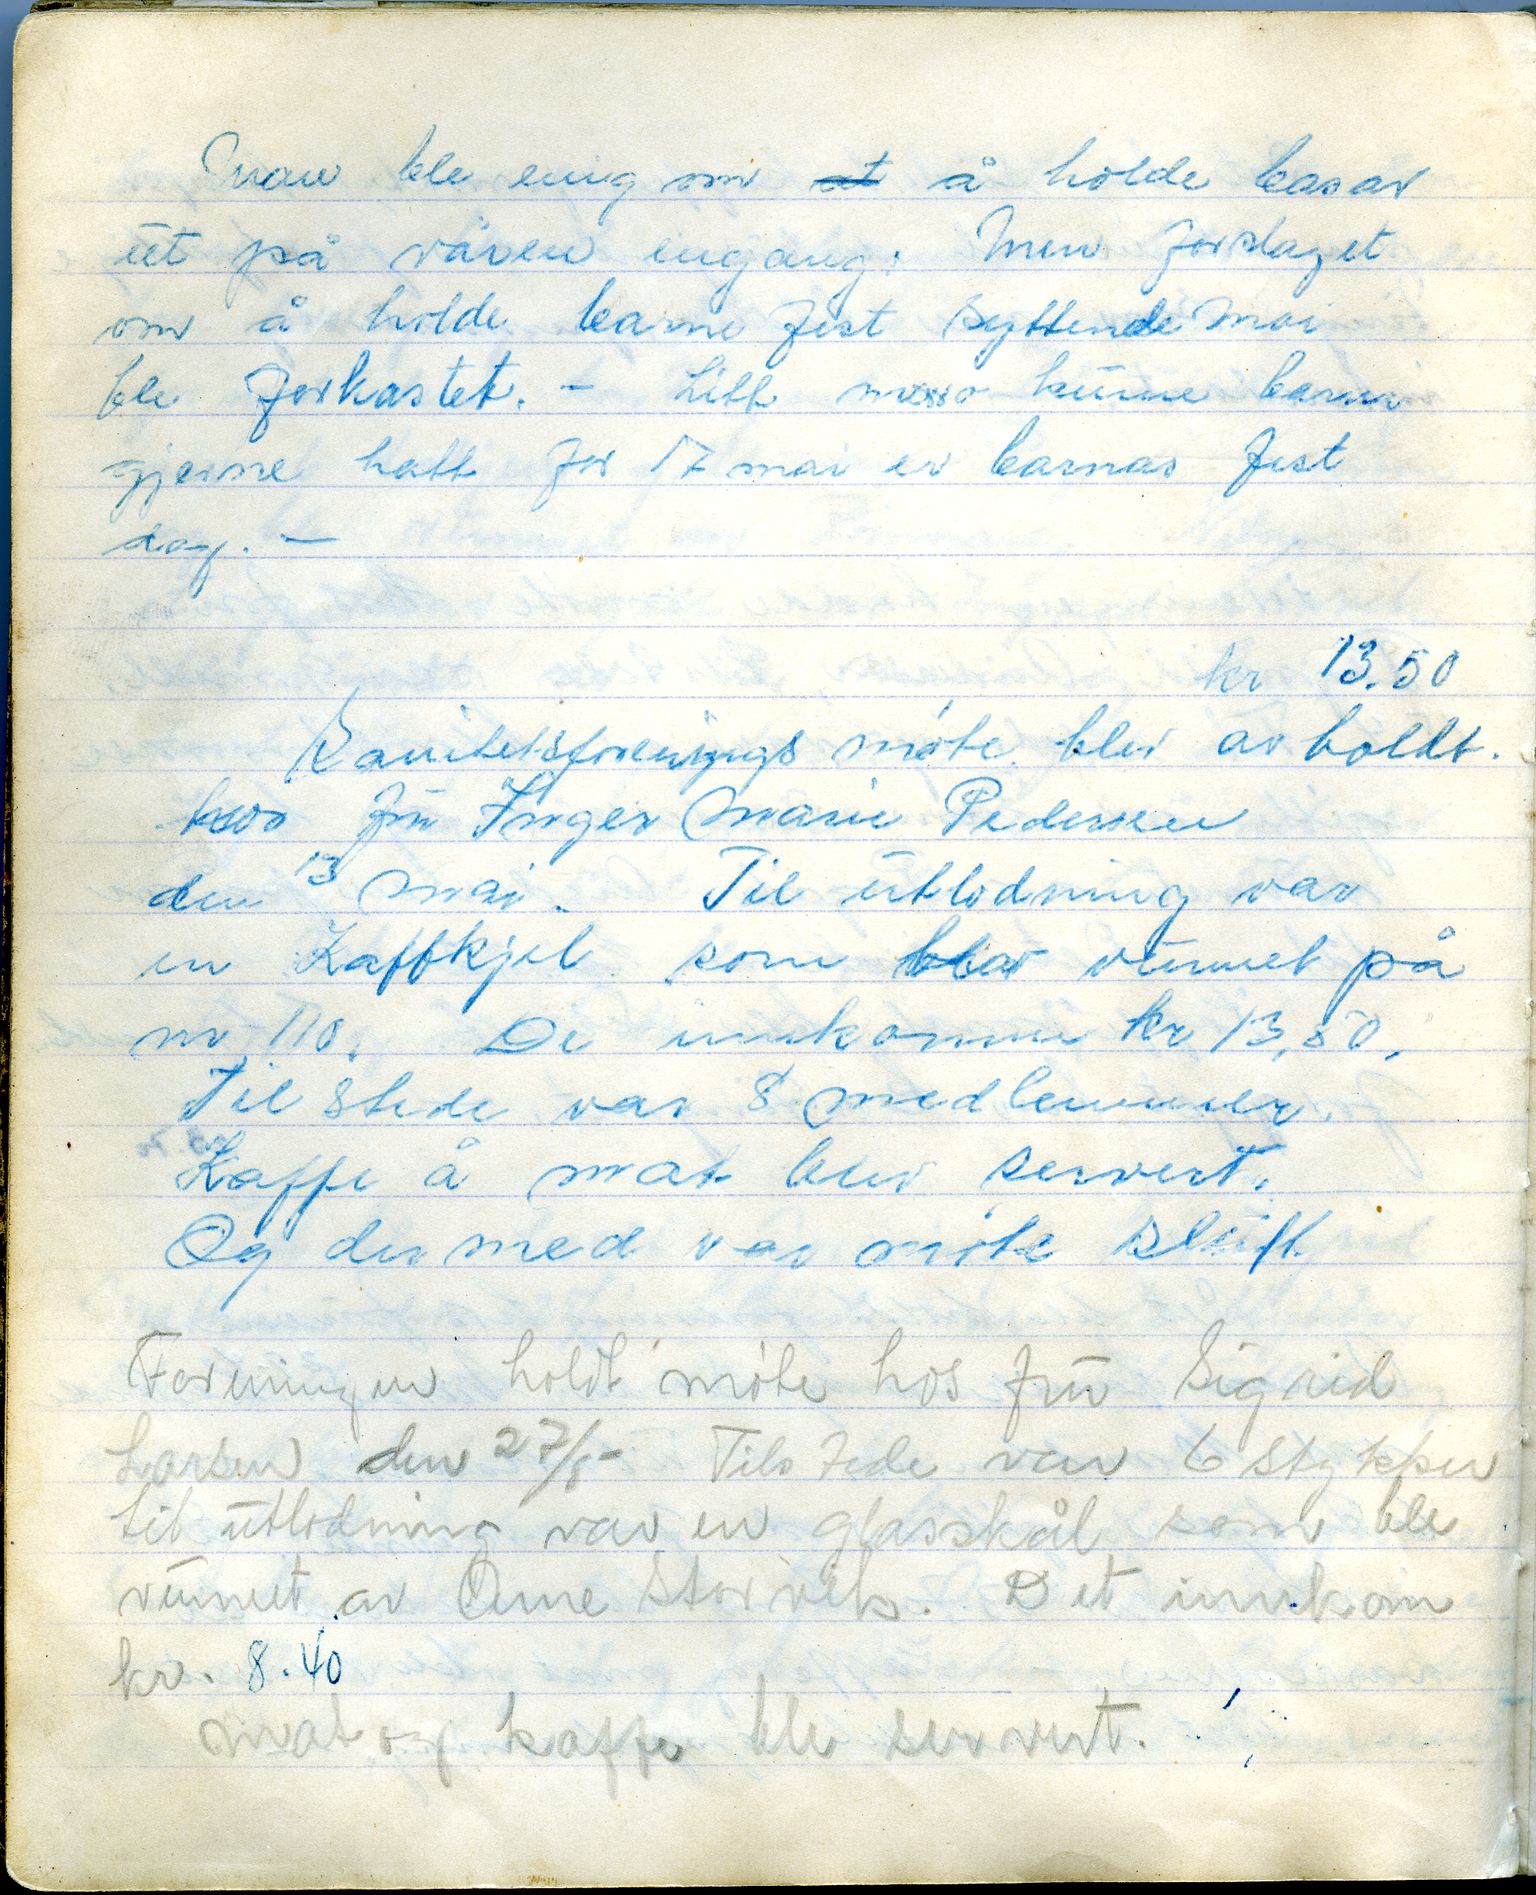 Man ble enig om ~~at~~ å holde basar
ut på våren engang. Men forslaget
om å holde barne fest syttende mai
ble forkastet. – Litt moro kunne barna
gjerne hatt for 17 mai er barnas fest
dag. –
kr 13.50
Sanitetsforenings møte blev av holdt.
hos fru Inger Marie Pedersen
den 13 mai. Til utlodning var
en Kaffkjel som blev vunnet på
nr 110. De innkomne kr 13,50.
Til stede var 8 medlemmer.
Kaffe å mat blev servert.
Og der med var møte slutt
Foreningen holdt møte hos fru Sigrid
Larsen den 27/5– Tilstede var 6 stykker
til utlodning var en glasskål som ble
vunnet av Arne Storvik. Det innkom
kr. 8.40
mat og kaffe ble servert.